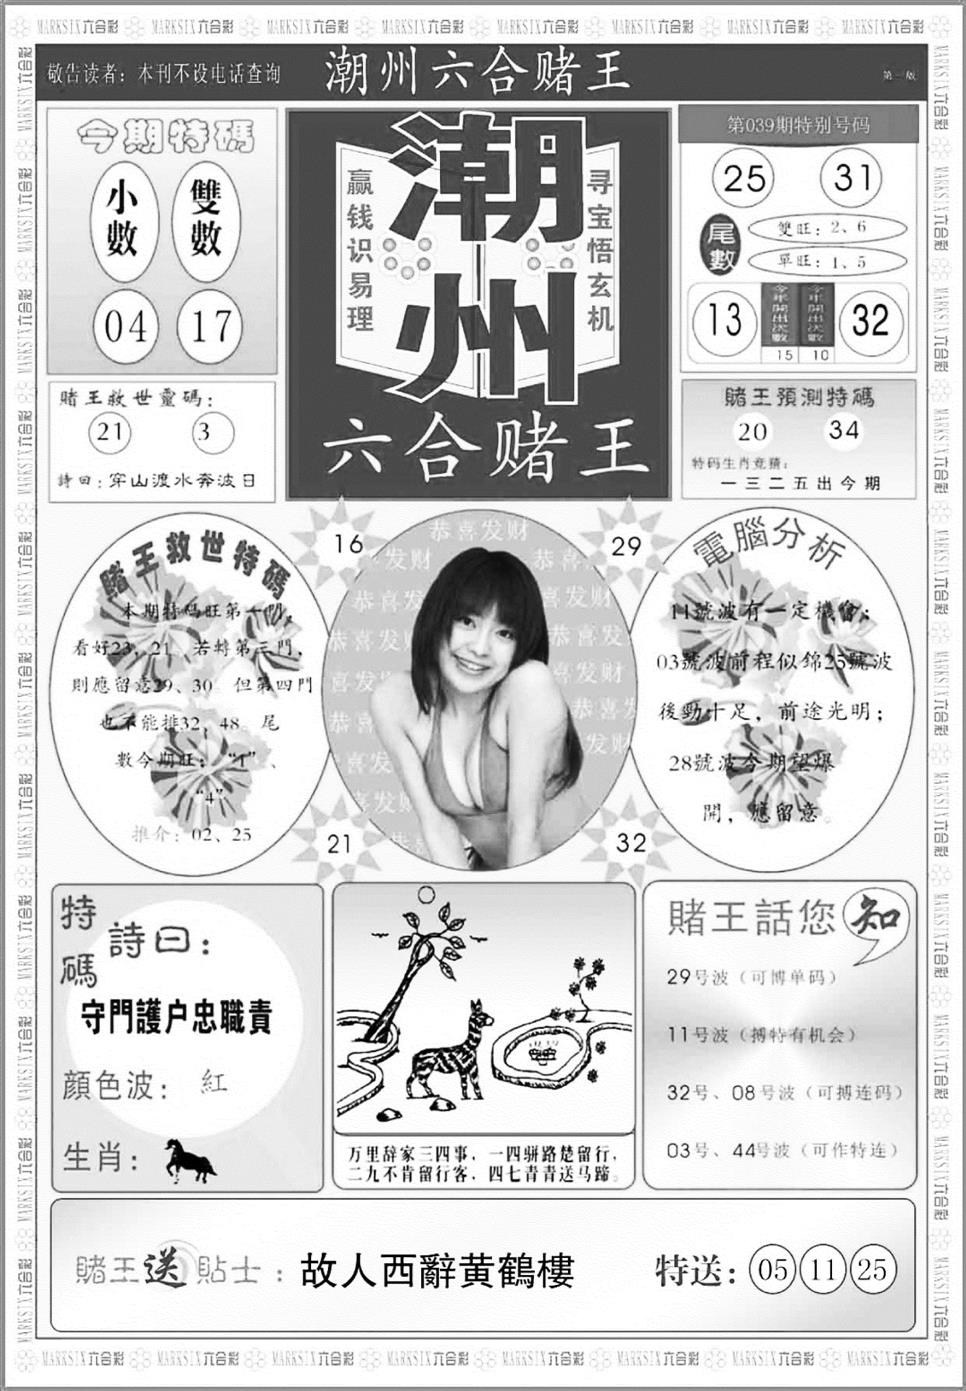 MARKSIX六合彩 MARKSIX六合彩 MARKSIX六合彩 MARKSIX六合彩 MARKSIX六合彩 MARKSIX六合彩 MARKSIX六合彩 MARKSIX六合彩
敬告读者：本刊不设电话查询
潮州六合赌王
第一版
今期特碼
小數
雙數
04
17
賭王救世靈碼：
21
3
詩曰：穿山渡水奔波日
赢钱识易理
潮州
寻宝悟玄机
六合赌王
第039期特别号码
25
31
尾數
雙旺：2、6
單旺：1、5
13
今年開出次數
今年開出次數
32
15
10
賭王預測特碼
20
34
特码生肖竞猜：
一三二五出今期
賭王救世特碼
本期特碼旺第一門，
看好23、21、若轉第三門，
則應留意29、30。但第四門
也不能排32，48。尾
數今期旺：“1”、
“4”
推介：02、25
16
29
21
32
恭喜发财
電腦分析
11號波有一定機會；
03號波前程似錦25號波
後勁十足，前途光明；
28號波今期望爆
開，應留意。
特碼
詩曰：
守門護户忠職責
顔色波：紅
生肖：
万里辞家三四事，一四骈路楚留行，
二九不肯留行客，四七青青送马蹄。
賭王話您知
29号波（可博单码）
11号波（搏特有机会）
32号、08号波（可搏连码）
03号、44号波（可作特连）
賭王送貼士：故人西辭黄鶴樓
特送：05 11 25
MARKSIX六合彩 MARKSIX六合彩 MARKSIX六合彩 MARKSIX六合彩 MARKSIX六合彩 MARKSIX六合彩 MARKSIX六合彩 MARKSIX六合彩